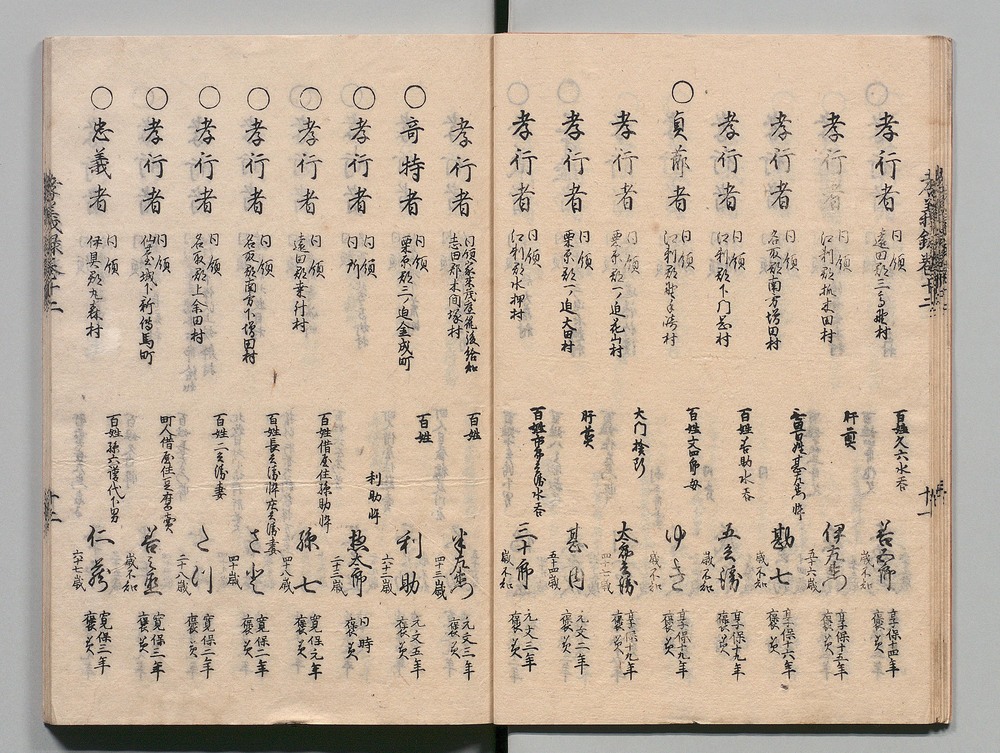 孝義録巻廿二
○孝行者 同領 遠田郡三高野村 百姓久六水呑 若四郎 享保十四年 褒美
孝行者 同領 江刺郡 田村 肝煎 伊左衛門 五十歳 享保十五年 褒美
孝行者 同領 名取郡南方増田村 勘七 歳不知 享保十六年 褒美
孝行者 同領 江刺郡下門岡村 百姓善助水呑 五兵衛 歳不知 享保十九年 褒美
○貞節者 同領 江刺郡野手崎村 百姓文四郎母 ゆき 歳不知 享保十九年 褒美
孝行者 同領 栗原郡一ノ迫花山村 大門 太郎兵衛 享保十九年 褒美
○孝行者 同領 栗原郡一ノ迫大田村 肝煎 甚内 五十四歳 元文二年 褒美
○孝行者 同領 江刺郡水押村 三十郎 歳不知 元文三年 褒美
十一
孝行者 同領 志田郡木間塚村 百姓 四十三歳 元文三年 褒美
○奇特者 同領 栗原郡三ノ迫金成町 百姓 利助 元文五年 褒美
○孝行者 同所 利助忰 熊太郎 二十二歳 同時 褒美
○孝行者 同領 遠田郡 村 百姓借屋住孫助忰 孫七 四十八歳 寛保元年 褒美
○孝行者 同領 名取郡南方下増田村 百姓長兵衛忰庄兵衛妻 さと 四十歳 寛保二年 褒美
○孝行者 同領 名取郡上余田村 百姓二兵衛妻 二十八歳 寛保二年 褒美
○孝行者 同領 仙台城下新傳馬町 町人借屋住豆腐賣 若之丞 歳不知 寛保三年 褒美
○忠義者 同領 伊具郡丸森村 百姓孫六譜代下男 仁蔵 六十七歳 寛保三年 褒美
孝義録巻廿二
十二